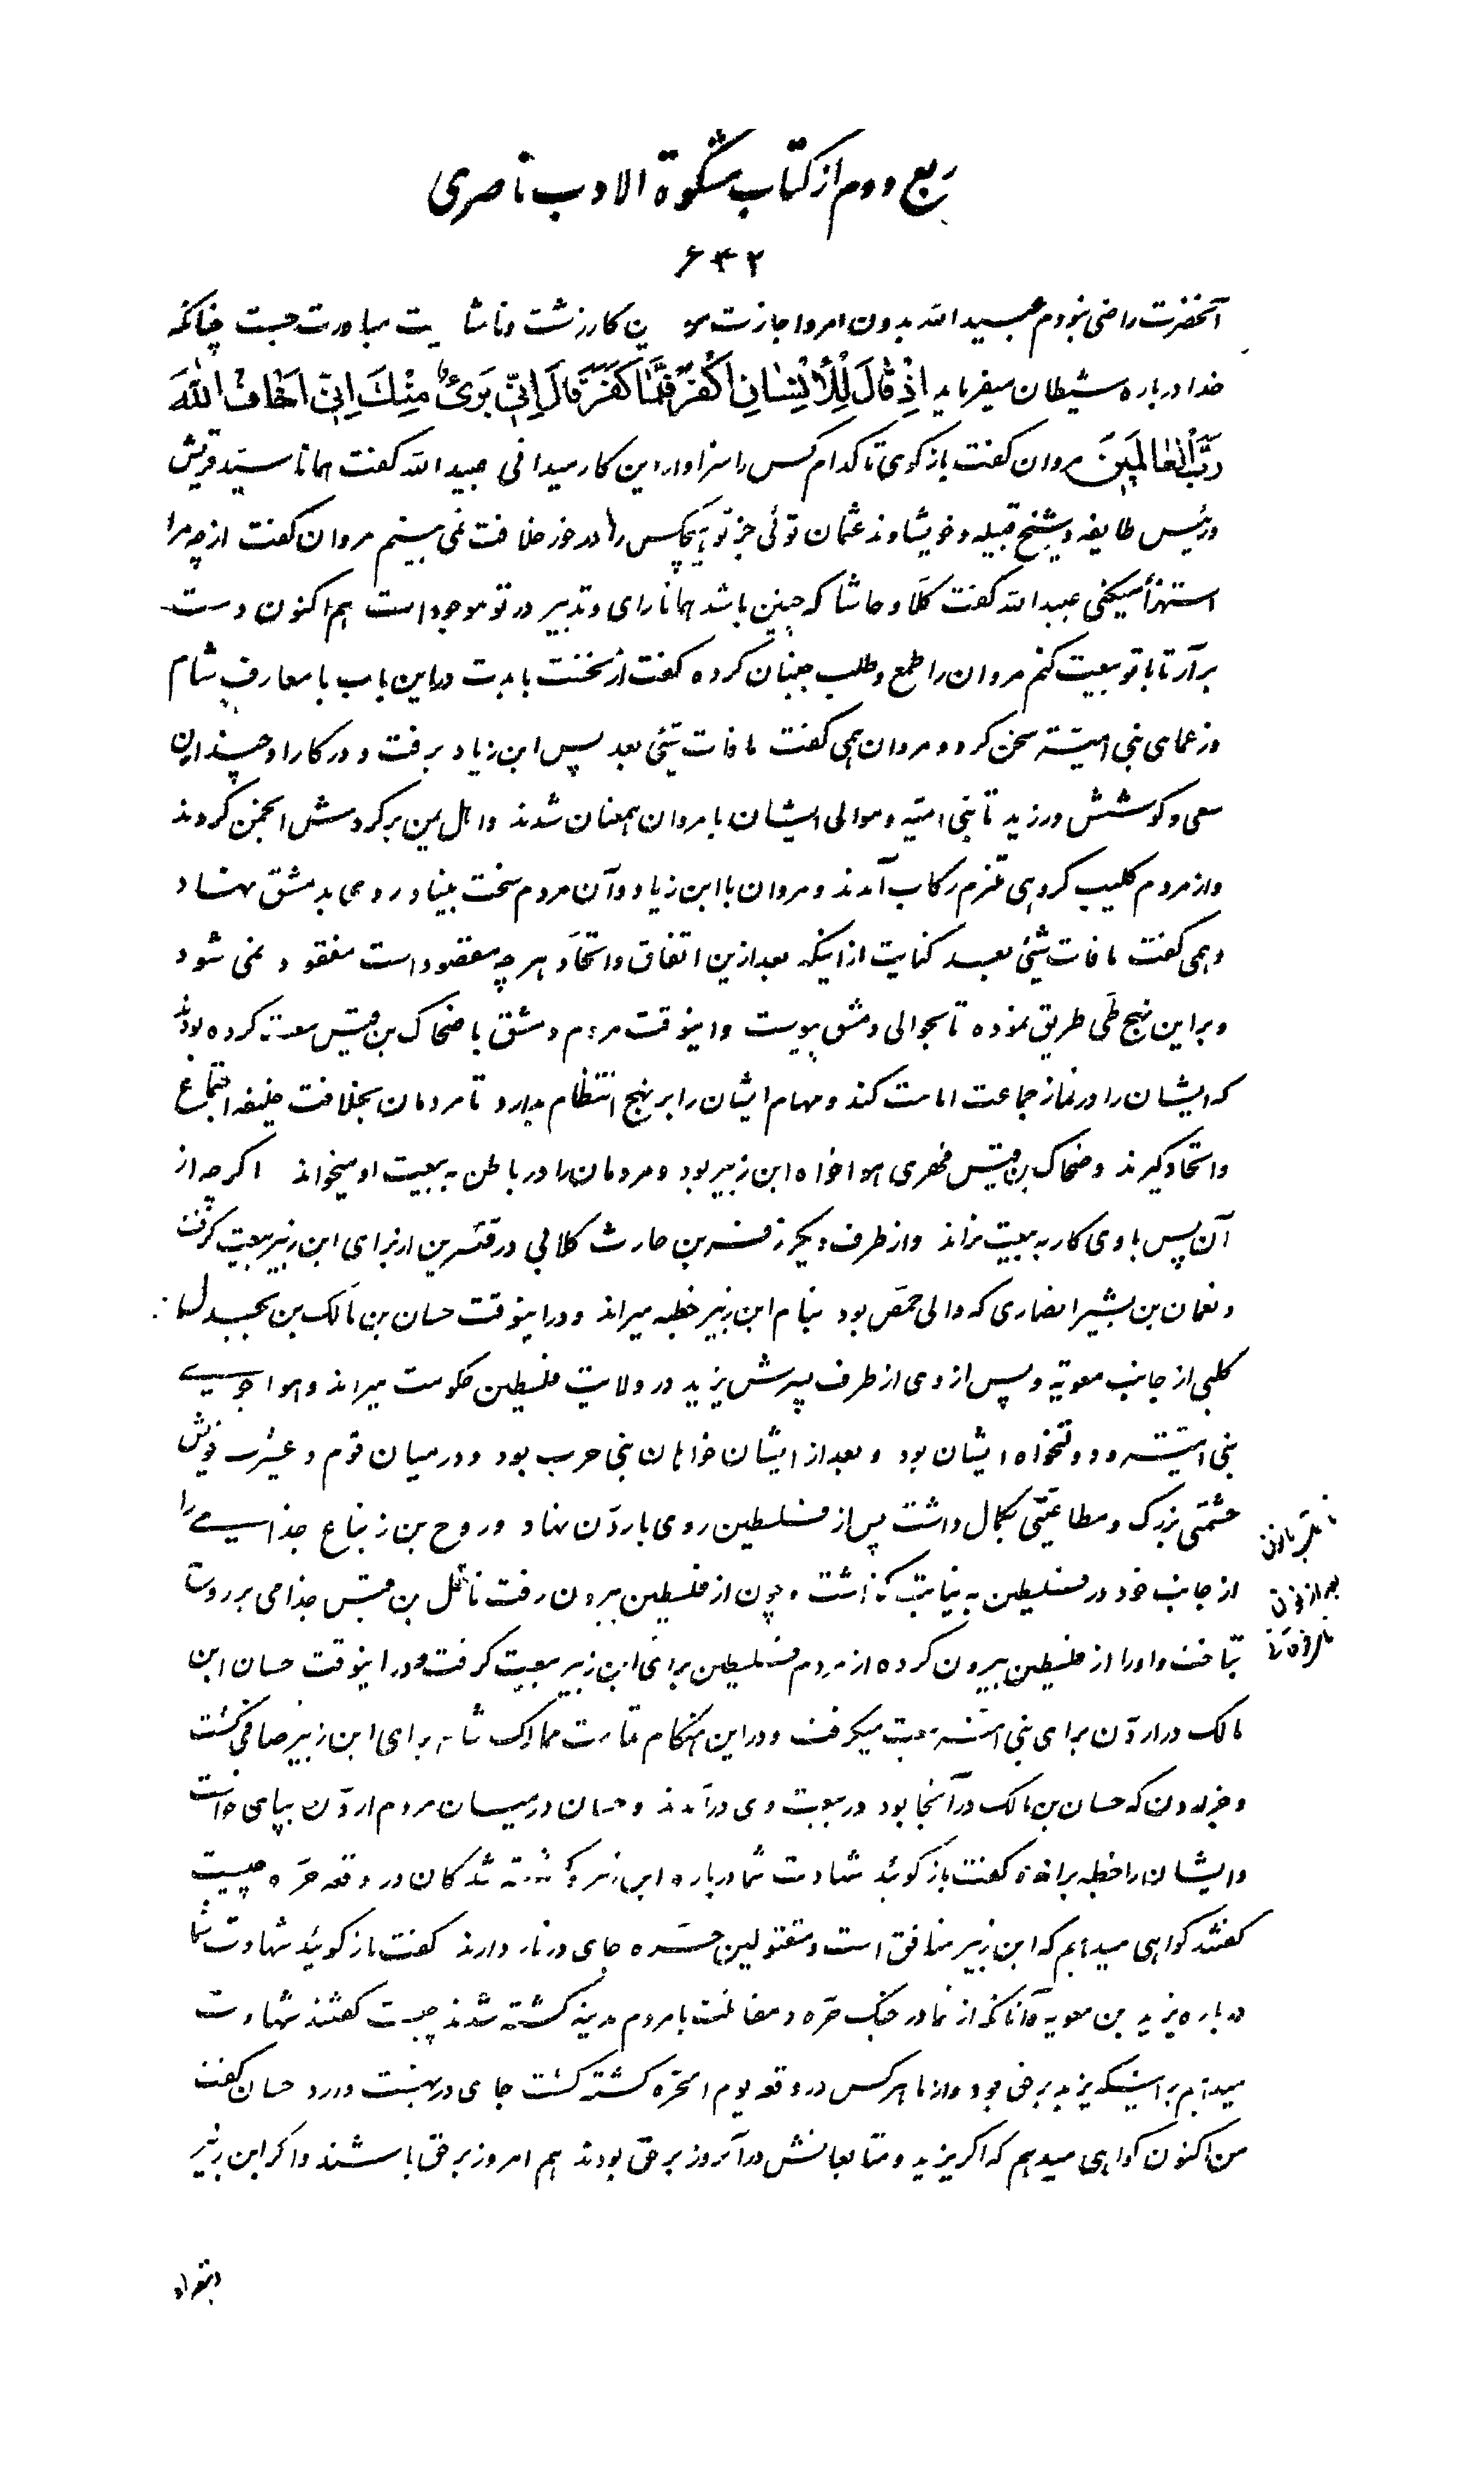 ربع دوم از کتاب مشکوة الادب ناصری
۶۴۲
آنحضرت راضی نبودم عبیدالله بدون امر و اجازت من کار زشت و ناشایت مبادرت جست چنانکه
خدا درباره شیطان میفرماید اِذْ قٰالَ لِلْاِنْسٰانِ اكْفُرْ فَلَمّٰا كَفَرَ قٰالَ اِنّي بَرئٌ مِنْكَ اِنّي اَخٰافُ اللهَ
رَبَّ الْعٰالَمينَ مروان گفت باز گوی تا کدام کس را سزاوار این کار میدانی عبید الله گفت همانا سیّد قریش
و رئیس طایفه و شیخ قبیله و خویشاوند عثمان توئی جز تو هیچکس را در خور خلافت نمی بینم مروان گفت از چه مرا
استهزأ میکنی عبید الله گفت کلّا و حاشا که چنین باشد همانا رای و تدبیر در تو موجود است هم اکنون دست
برآر تا با تو بیعت کنم مروان را طمع و طلب جنبان کرده گفت از نخست بایدت در این باب با معارف شام
و زعمای بنی امیّه سخن کرد و مروان همی گفت ما فات شیئی بعد پس ابن زیاد برفت و در کار او چندان
سعی و کوشش ورزید تا بنی امیّه و موالی ایشان با مروان همعنان شدند و اهل یمن بر گردش انجمن کردند
و از مردم کلیب گروهی ملتزم رکاب آمدند و مروان با ابن زیاد و آن مردم سخت بنیاد روی بدمشق نهاد
و همی گفت ما فات شیئی بعد کنایت از اینکه بعد ازین اتفاق و اتحاد هر چه مقصود است مفقود نمی شود
و بر این نهج طی طریق نموده تا بحوالی دمشق پیوست و اینوقت مردم دمشق با ضحاک بن قیس بیعت کرده بودند
که ایشان را در نماز جماعت امامت کند و مهام ایشان را بر نهج انتظام بدارد تا مردمان بخلافت خلیفه اجتماع
و اتحاد گیرند و ضحاک بن قیس فهری هواخواه ابن زبیر بود و مردمان را در باطن به بیعت او میخواند اگر چه از
آن پس با وی کار به بیعت نراند و از طرف دیگر زفر بن حارث کلابی در قنسرین از برای ابن زبیر بیعت گرفت
و نعمان بن بشیر انصاری که والی حمص بود بنام ابن زبیر خطبه میراند و در اینوقت حسان بن مالک بن بجدل
کلبی از جانب معویة و پس از وی از طرف پسرش یزید در ولایت فلسطین حکومت میراند و هواجوی
بنی امیّه و دولتخواه ایشان بود و بعد از ایشان خواهان بنی حرب بود و در میان قوم و عشیرت خویش
حشمتی بزرگ و مطاعیّتی بکمال داشت پس از فلسطین روی باردّن نهاد و روح بن زنباع جذامی را
از جانب خود در فلسطین به نیابت گذاشت و چون از فلسطین بیرون رفت ناتل بن قیس جذامی بر روی
بتاخت و او را از فلسطین بیرون کرده از مردم فلسطین برای ابن زبیر بیعت گرفت و در اینوقت حسان ابن
مالک در اردّن برای بنی امیّه بیعت میگرفت و در این هنگام تمامت ممالک شام برای ابن زبیر صافی گشت
و جز اردن که حسان بن مالک در آنجا بود در بیعت وی درآمدند و حسان در میان مردم اردّن بپای خواست
و ایشان را خطبه براند گفت باز گوئید شهادت شما درباره ابن زبیر و کشته شدگان در وقعه حرّه چیست
گفتند گواهی میدهیم که ابن زبیر منافق است و مقتولین حرّه جای در نار دارند گفت باز گوئید شهادت شما
درباره یزید بن معویه و آنانکه از شما در جنگ حرّه و مقاتلت با مردم مدینه کشته شدند چیست گفتند شهادت
میدهیم براینکه یزید بر حق بود و از ما هر کس در وقعه یوم الحرّه کشته گشت جای در بهشت دارد حسان گفت
من اکنون گواهی میدهم که اگر یزید و متابعانش در آنروز بر حق بودند هم امروز بر حق باشند و اگر ابن زبیر